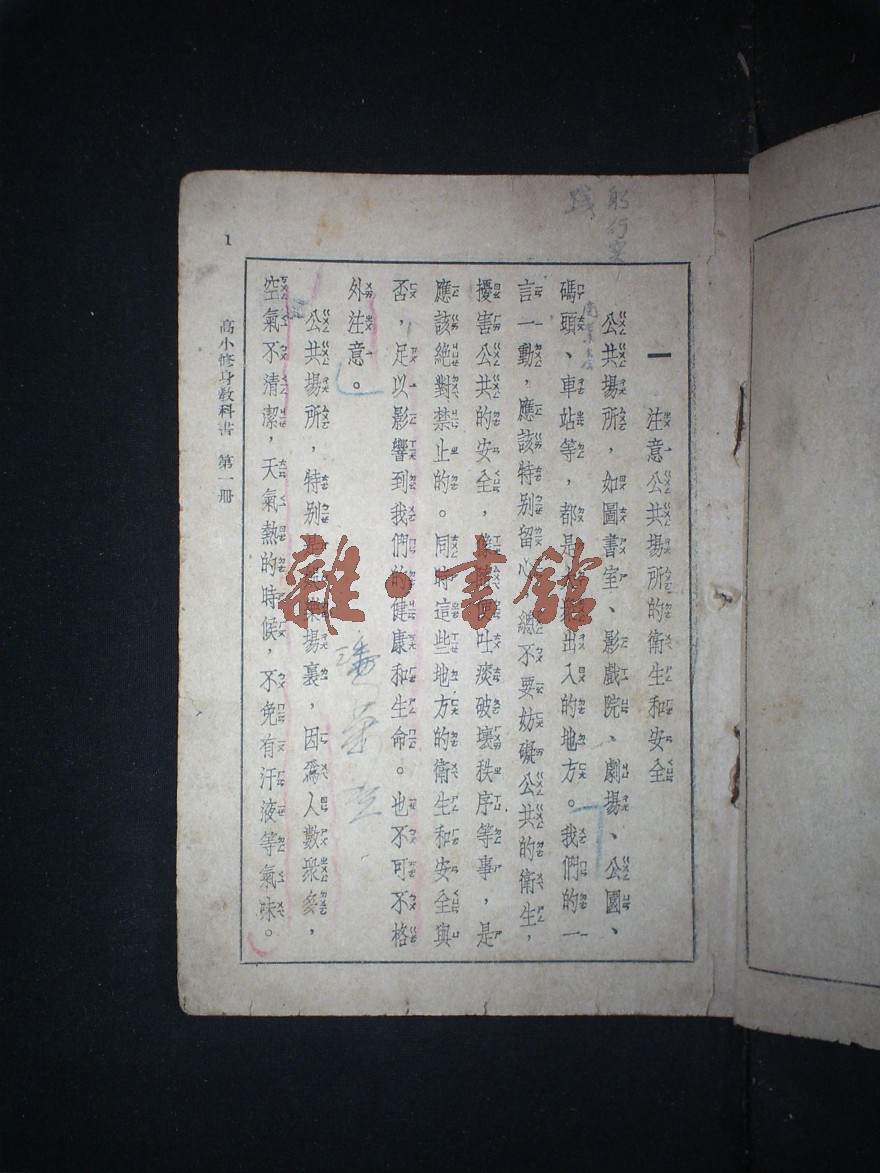 躬行實
踐
一　注意公共場所的衛生和安全
公共場所，如圖書室、影戲院、劇場、公園、
碼頭、車站等，都是出入的地方。我們的一
言一動，應該特别留心，總不要妨礙公共的衛生，
擾害公共的安全，吐淡破壞秩序等事，是
應該絶對禁止的。同時這些地方的衛生和安全與
否，足以影響到我們的健康和生命。也不可不格
外注意。
公共場所，特别場裏，因爲人數衆多，
空氣不清潔，天氣熱的時候，不免有汗液等氣味。
高小修身教科書 第一册
1
雜·書館